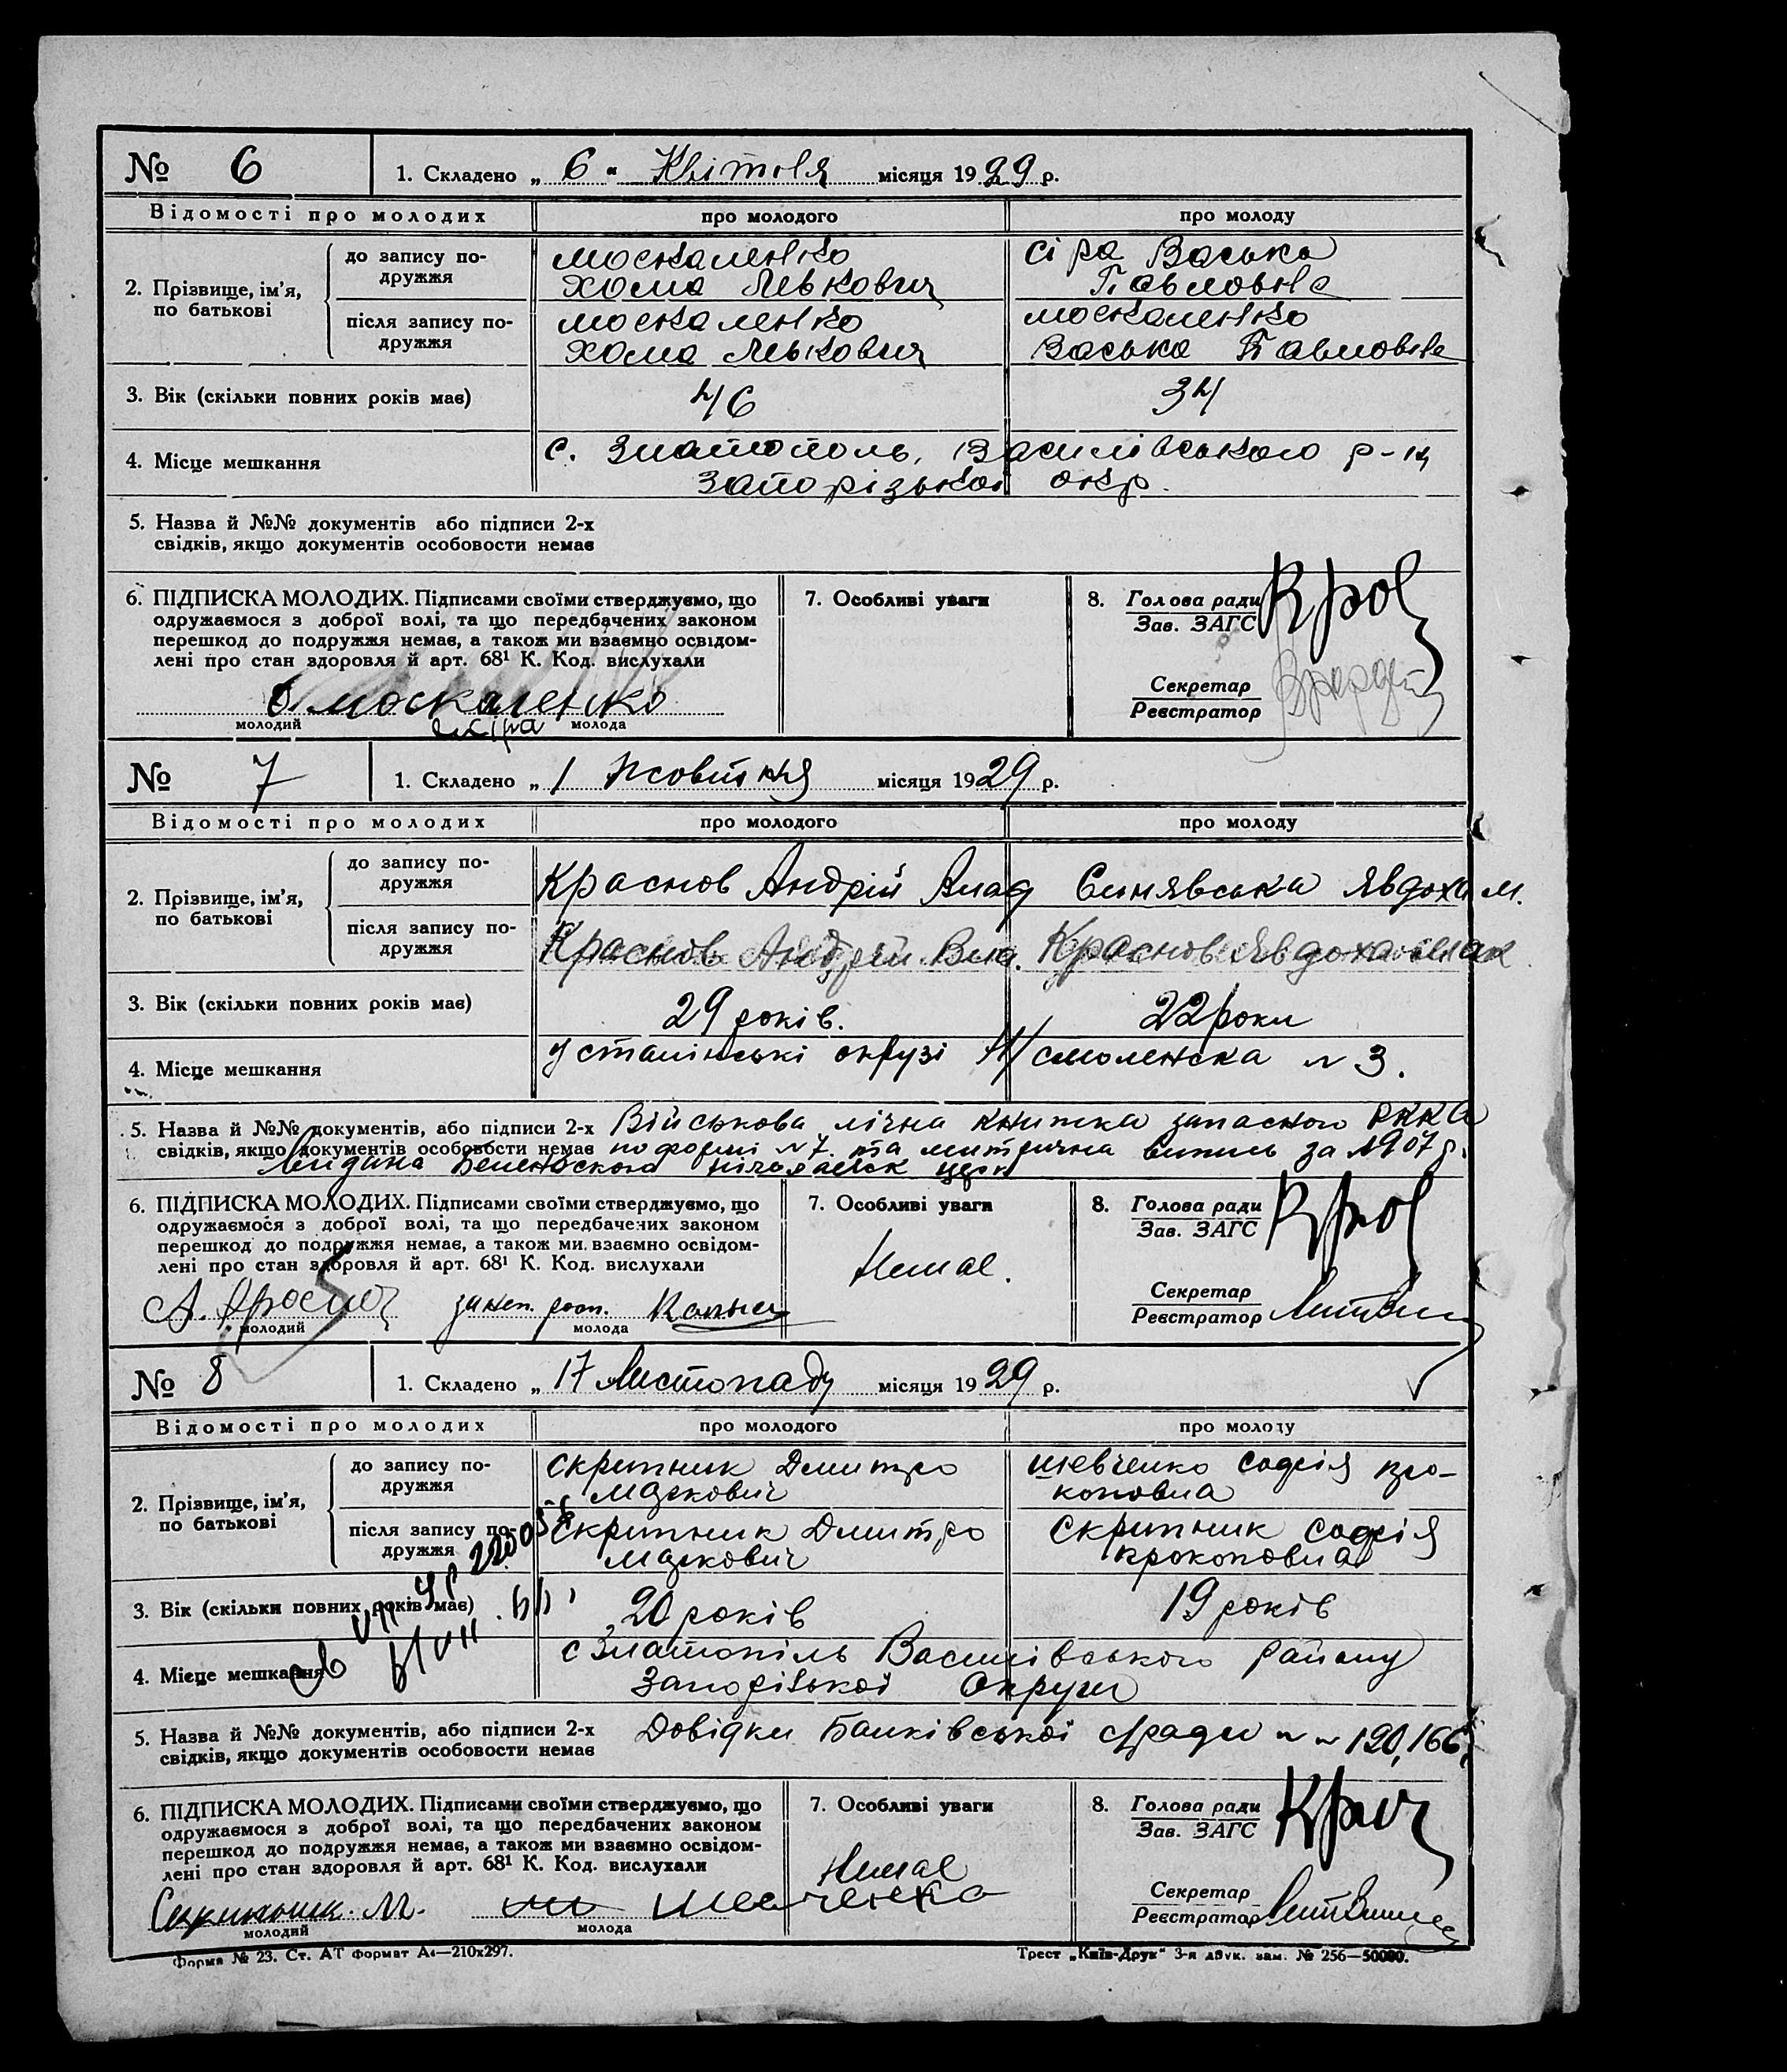 № 6 1. Складено „ 6 " Квітня місяця 1929 р.
Відомості про молодих про молодого про молоду
2. Прізвище, ім'я, по батькові
до запису по-
дружжя
Москаленко
Хома Левкович
Сіра Васька
Павловна
після запису по-
дружжя
Москаленко
Хома Левкович
Москаленко
Васька Павловна
3. Вік (скільки повних років має) 46 34
4. Місце мешкання с. Златополь, Василівського р-н
Запорізької окр.
5. Назва й №№ документів або підписи 2-х
свідків, якщо документів особовости немає
6. ПІДПИСКА МОЛОДИХ. Підписами своїми стверджуємо, що
одружаємося з доброї волі, та що передбачених законом
перешкод до подружжя немає, а також ми взаємно освідом-
лені про стан здоровля й арт. 68¹ К. Код. вислухали
Москаленко
молодий молода
Сіра
7. Особливі уваги
8. Голова ради
Зав. ЗАГС
Секретар
Реєстратор
№ 7 1. Складено „ 1 жовтня місяця 1929 р.
Відомості про молодих про молодого про молоду
2. Прізвище, ім'я,
по батькові
до запису по-
дружжя
Краснов Андрій Влад Синявська Явдоха М.
після запису по-
дружжя
Краснов Андрій Вла. Краснов Явдоха
3. Вік (скільки повних років має) 29 років. 22 роки
4. Місце мешкання у сталінські окрузі смоленска N 3.
5. Назва й №№ документів, або підписи 2-х
свідків, якщо документів особовости немає
Військова лічна книжка запасного РККА
по формі N 7. та метрична випись за 1907 р.
6. ПІДПИСКА МОЛОДИХ. Підписами своїми стверджуємо, що
одружаємося з доброї волі, та що передбачених законом
перешкод до подружжя немає, а також ми взаємно освідом-
лені про стан здоровля й арт. 68¹ К. Код. вислухали
А. Краснов
молодий молода
7. Особливі уваги
Немає.
8. Голова ради
Зав. ЗАГС
Секретар
Реєстратор
№ 8 1. Складено „ 17 Листопаду місяця 1929 р.
Відомості про молодих про молодого про молоду
2. Прізвище, ім'я,
по батькові
до запису по-
дружжя
Скрипник Дмитро
Маркович
Шевченко Софія про-
коповна
після запису по-
дружжя
Скрипник Дмитро
Маркович
Скрипник Софія
прокоповна
3. Вік (скільки повних років має) 20 років 19 років
4. Місце мешкання с Златопіль Василівського району
Запорізької Округи
5. Назва й №№ документів, або підписи 2-х
свідків, якщо документів особовости немає
Довідки Банківської с/ради N N 120, 166,
6. ПІДПИСКА МОЛОДИХ. Підписами своїми стверджуємо, що
одружаємося з доброї волі, та що передбачених законом
перешкод до подружжя немає, а також ми взаємно освідом-
лені про стан здоровля й арт. 68¹ К. Код. вислухали
Скрипник М. Шевченка
молодий молода
7. Особливі уваги
Немає
8. Голова ради
Зав. ЗАГС
Секретар
Реєстратор
Форма № 23. Ст. АТ формат А₄—210х297.
Трест „Київ-Друк" 3-я друк. зам. № 256—50000.